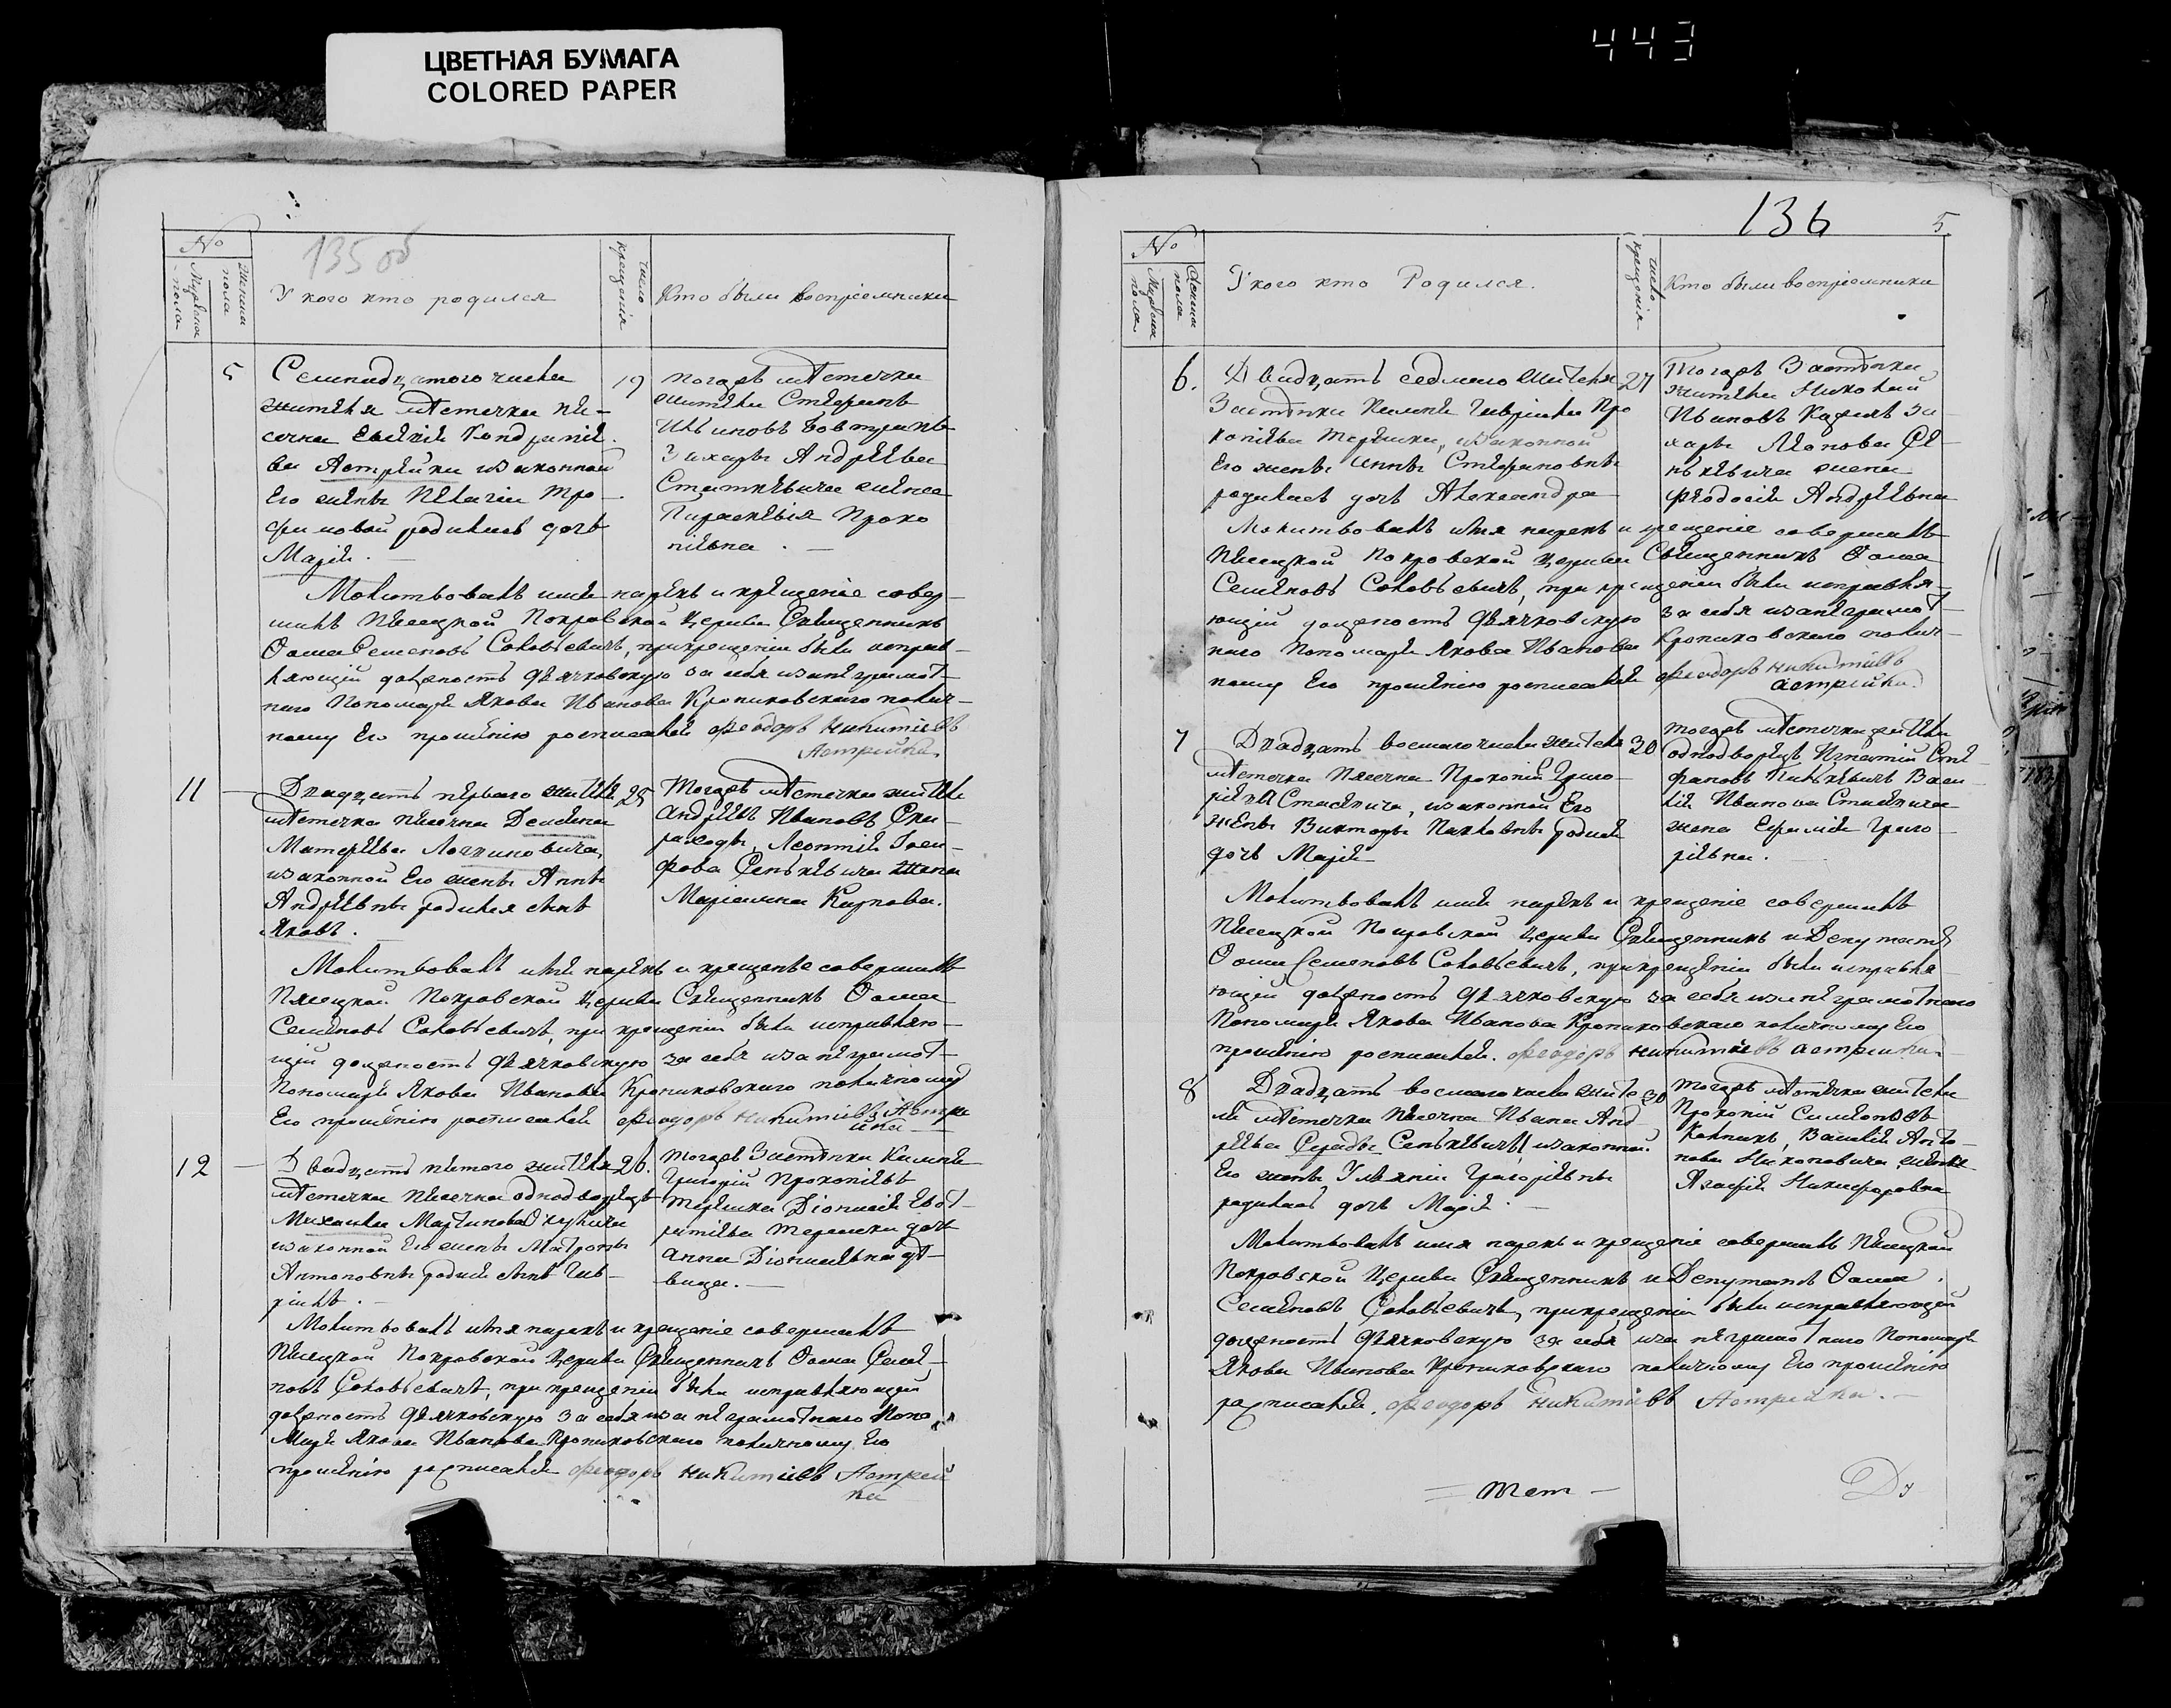 ЦВЕТНАЯ БУМАГА
COLORED PAPER
443
135 об
№
Мужеска пола
Женска пола
У кого кто родился
число крещенія
Кто были воспріемники
5
Семнадцатого числа
жителя мѣстечка Пи-
сечна
Астрейки изаконной
Его жены Пелагіи Тро-
фимовой родилась дочь
Марія.
19
тогожъ мѣстечка
жители Стефанъ
Захары Андреева
Статкевича жена
Параскевія Проко
піевна.
Молитвовалъ имя нарекъ и крещеніе совер-
шилъ Писецкой Покровской Церкви Священникъ
Фома Семеновъ Соловьевичъ, прикрещеніи были исправ-
ляющій должность Дьячковскую за себя иза неграмот-
наго Пономаря Якова Иванова Кропиковскаго полич-
ному Его прошенію росписался Феодоръ Никитіевъ
Астрейка.
11
Двадцать перваго жителя
мѣстечка Писечна Демьяна
Матфеева
изаконной Его жены Анны
Андреевны родился сынъ
Яковъ.
25
Тогожъ мѣстечка жители
Андрей Ивановъ Ска-
раходъ, Леонтія Іоси-
фова Сенькевича жена
Маріанна Карпова.
Молитвовалъ имя нарекъ и крещенье совершилъ
Писецкой Покровской Церкви Священникъ Фома
Семеновъ Соловьевичъ, при крещеніи были исправляю-
щій должность Дьячковскую за себя иза неграмот-
Пономаря Якова Иванова Кропиковскаго поличному
Его прошенію росписался Феодоръ Никитіевъ Астре
йка
12
Двадцать пятого жителя
мѣстечка Писечна однодворца
Михаила Мартинова
изаконной Его жены Матроны
Антоновны родися сынъ Гав-
ріилъ.
26.
тогожъ Застѣнка
Григорій Прокопіевъ
Терешка Діонисія
Терешки дочь
Анна Діонисіевна дѣ-
вица.
Молитвовалъ имя нарекъ и крещеніе совершилъ
Писецкой Покровской Церкви Священникъ Фома Семе-
новъ Соловьевичъ, при крещеніи были исправляющій
должность Дьячковскую за себя иза неграмотнаго Поно
маря Якова Иванова Кропиковскаго поличному Его
прошенію росписался Феодоръ Никитіевъ Астрей
ка
136
5
№
Мужеска пола
Женска пола
У кого кто Родился.
число крещенія
Кто были воспріемники
6.
Двадцать седмаго жителя
Застѣнка Гавріила Про
копіева Терешки, изаконной
Его жены Анны Стефановны
родилась дочь Александра
27
Тогожъ Застѣнка
жители Николай
Ивановъ За
хары Леонова Се-
нькевича жена
Феодосія Андреевна
Молитвовалъ имя нарекъ и крещеніе совершилъ
Писецкой Покровской Церкви Священникъ Фома
Семеновъ Соловьевичъ, при крещеніи были исправля-
ющій должность Дьячковскую за себя иза неграмот-
наго Пономаря Якова Иванова Кропиковскаго полич-
ному Его прошенію росписался Феодоръ Никитіевъ
Астрейка.
7
Двадцать восмаго числа жителя
мѣстечка Писечна Прокопія Григо-
ріева Стасевича, изаконной Его
жены Викторы Павловны родися
дочь Марія
30
тогожъ мѣстечка жители
однодворецъ Игнатій Сте-
фановъ Васи-
лія Иванова Стасевича
жена Ефимія Григо-
ріевна.
Молитвовалъ имя нарекъ и крещеніе совершилъ
Писецкой Покровской Церкви Священникъ и Депутатъ
Фома Семеновъ Соловьевичъ, прикрещеніи были исправля-
ющій должность Дьячковскую за себя иза неграмотнаго
Пономаря Якова Иванова Кропиковскаго поличному Его
прошенію росписался. Феодоръ Никитіевъ Астрейка
8
Двадцать восмаго числа жите
ля мѣстечка Писечна Ивана Анд
реева Сенькевича изаконной
Его жены Ульяніи Григоріевны
родилась дочь Марія.
30
тогожъ мѣстечка жители
Прокопій Симеоновъ
Василія Анто-
нова жена
Агафія Никифоровна
Молитвовалъ имя нарекъ и крещеніе совершилъ Писецкой
Покровской Церкви Священникъ и Депутатъ Фома
Семеновъ Соловьевичъ, прикрещеніи были исправляющій
должность Дьячковскую за себя иза неграмотнаго Пономаря
Якова Иванова Кропиковскаго поличному Его прошенію
росписался. Феодоръ Никитіевъ Астрейка.